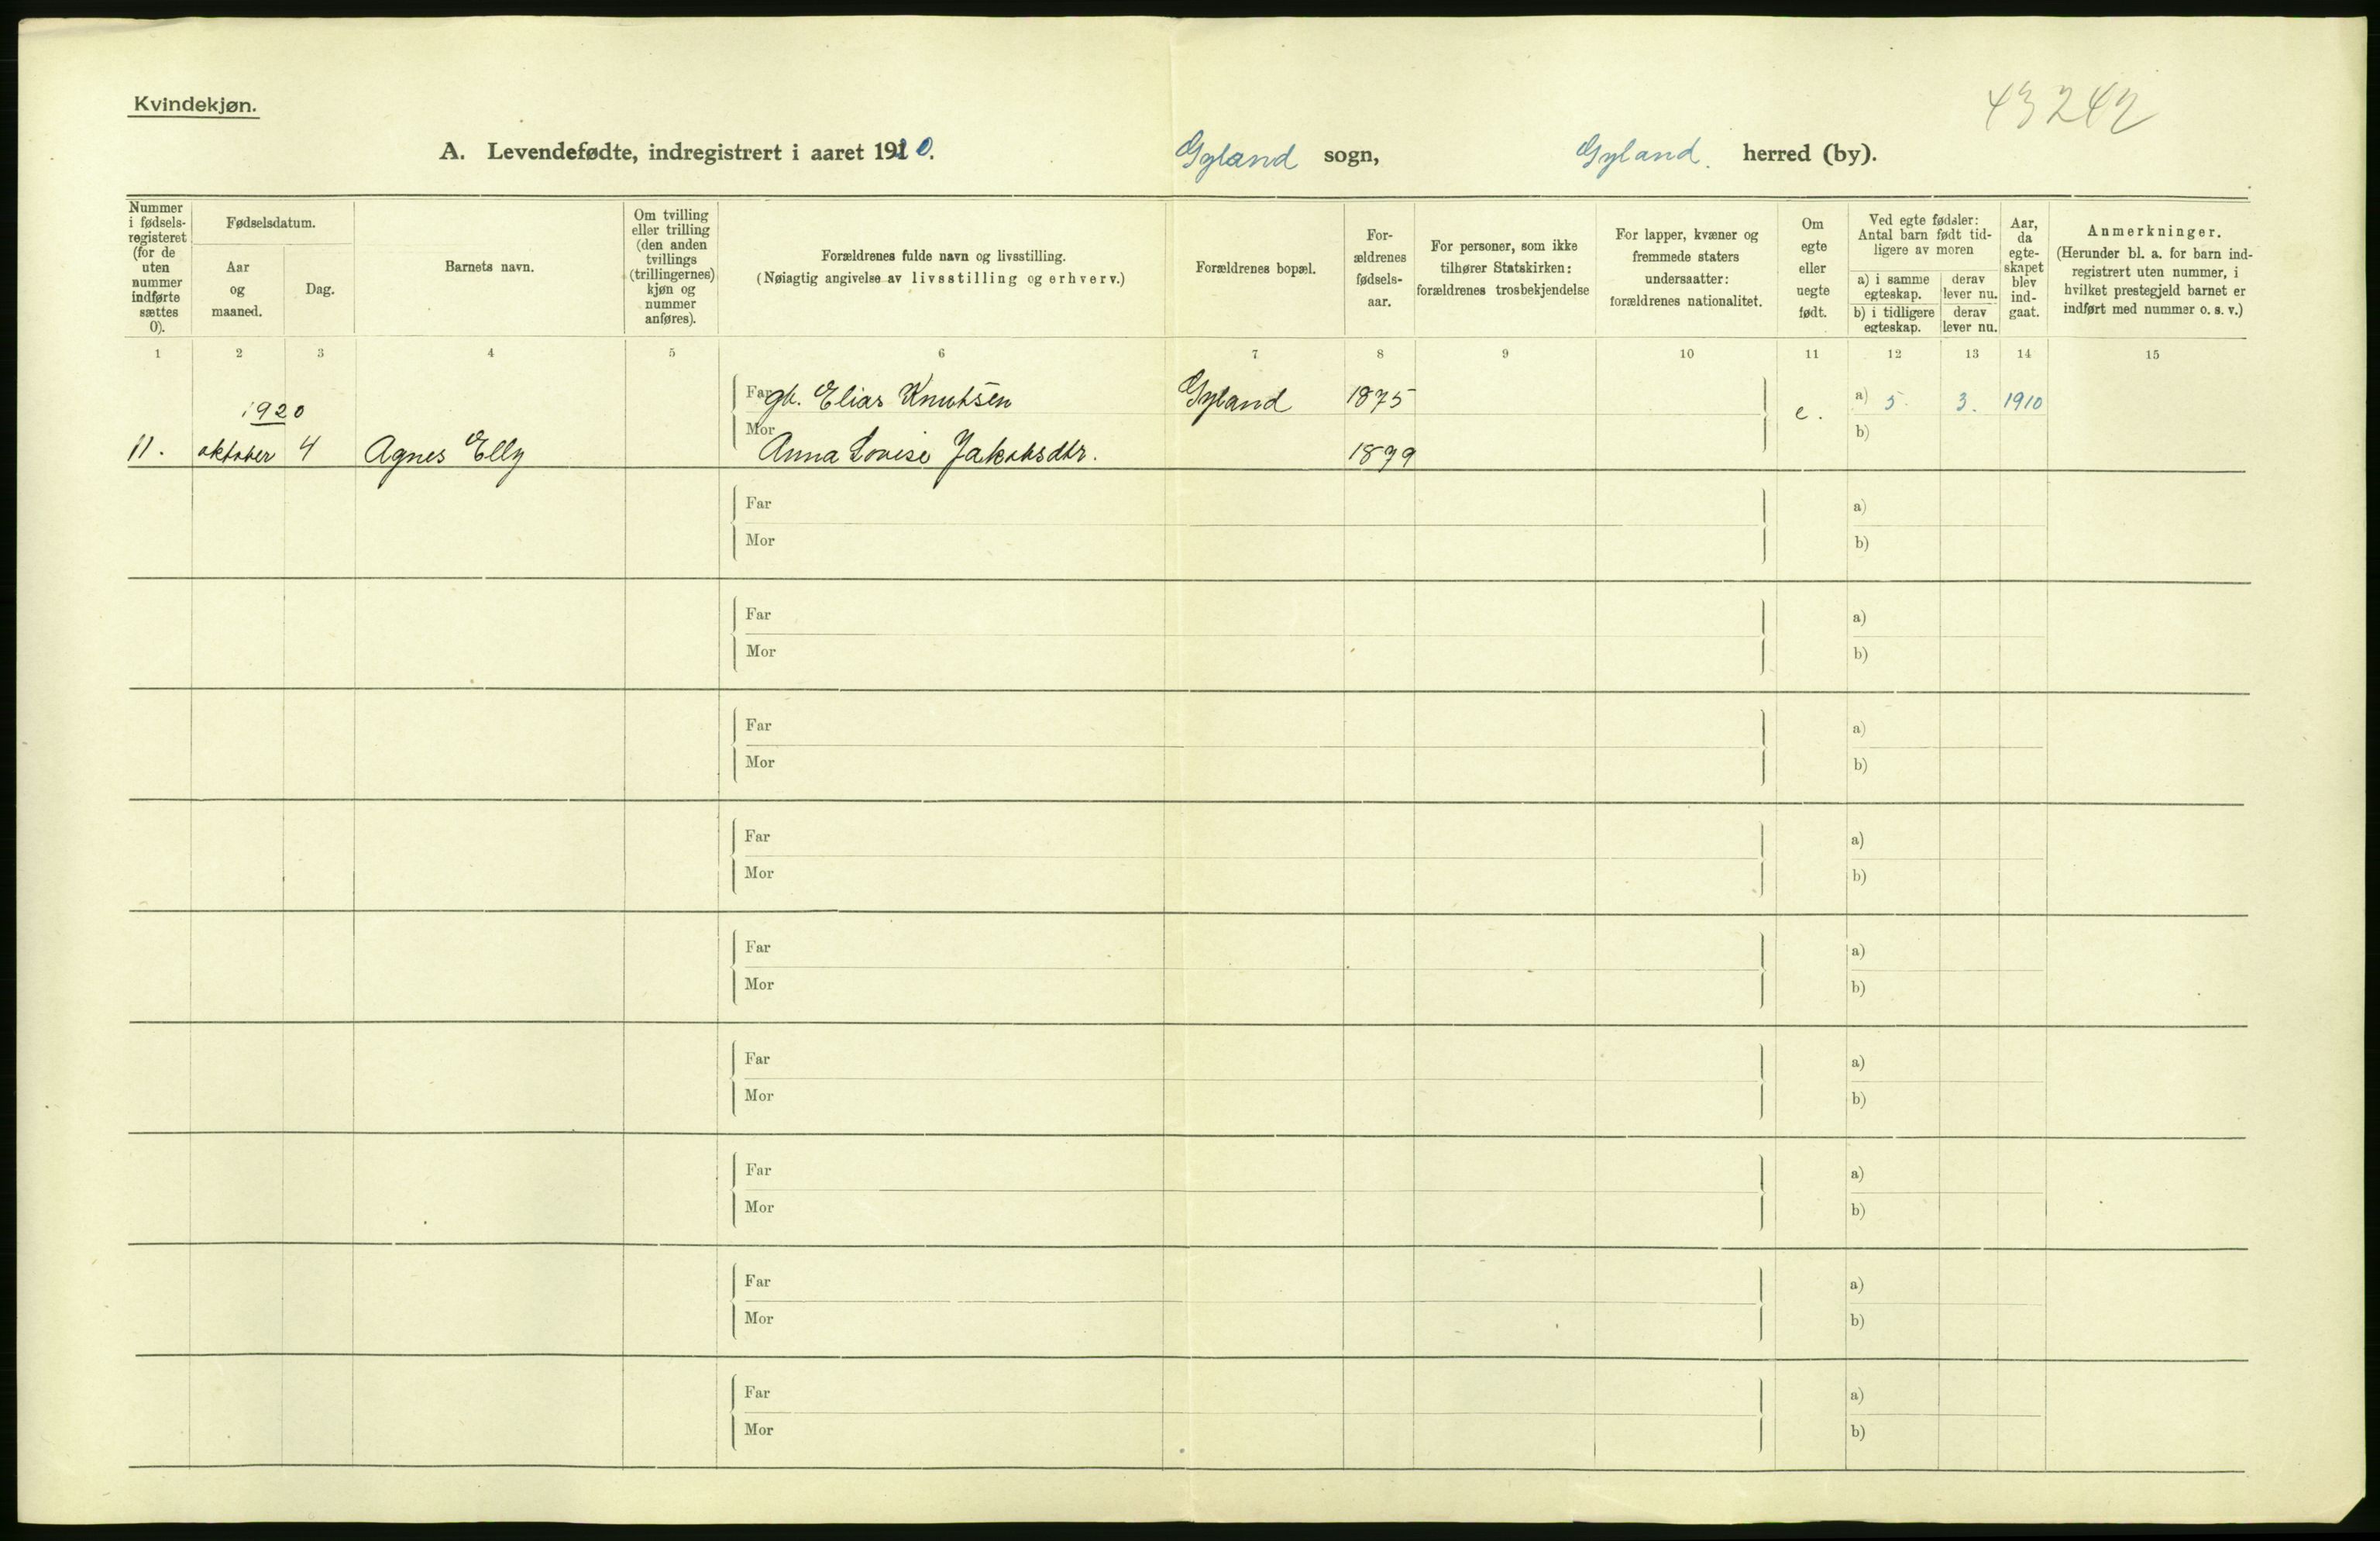 Kvindekjøn.
43242
A. Levendefødte, indregistrert i aaret 1920. Gyland sogn, Gyland herred (by).
Nummer i fødsels-registeret (for de uten nummer indførte sættes 0).
Fødselsdatum.
Aar og maaned.
Dag.
Barnets navn.
Om tvilling eller trilling (den anden tvillings (trillingernes) kjøn og nummer anføres).
Forældrenes fulde navn og livsstilling.
(Nøiagtig angivelse av livsstilling og erhverv.)
Forældrenes bopæl.
For-ældrenes fødsels-aar.
For personer, som ikke tilhører Statskirken: forældrenes trosbekjendelse
For lapper, kvæner og fremmede staters undersaatter: forældrenes nationalitet.
Om egte eller uegte født.
Ved egte fødsler: Antal barn født tid-ligere av moren
a) i samme egteskap.
derav lever nu.
b) i tidligere egteskap.
derav lever nu.
Aar, da egte-skapet blev ind-gaat.
Anmerkninger.
(Herunder bl. a. for barn ind-registrert uten nummer, i hvilket prestegjeld barnet er indført med nummer o. s. v.)
1 2 3 4 5 6 7 8 9 10 11 12 13 14 15
1920
Far gb. Elias Knutsen Gyland 1875 e. a) 5. 3. 1910
Mor b)
11. oktober 4 Agnes Elly Anna Lovise Jakobsdtr. 1879
Far a)
Mor b)
Far a)
Mor b)
Far a)
Mor b)
Far a)
Mor b)
Far a)
Mor b)
Far a)
Mor b)
Far a)
Mor b)
Far a)
Mor b)
Far a)
Mor b)